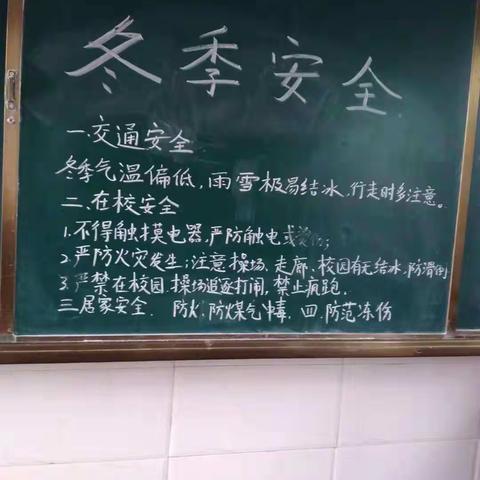 冬季安全
一.交通安全
冬季气温偏低,雨雪极易结冰,行走时多注意。
二.在校安全
1.不得触摸电器,严防触电或
2.严防火灾发生;注意操场、走廊、校园有无结冰,防滑倒
3.严禁在校园、操场追逐打闹,禁止疯跑.
三居家安全. 防火.防煤气中毒. 四.防范冻伤